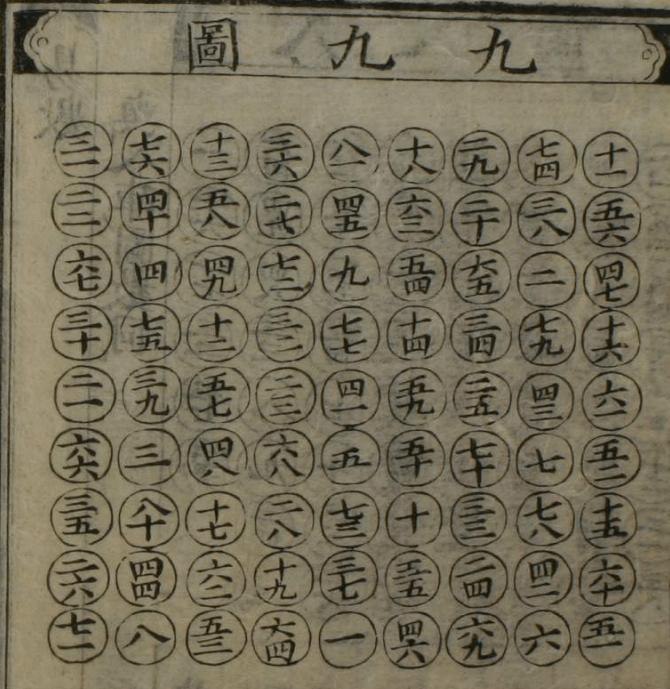 九九圖
十一 七四 二九 十八 八一 三六 十三 七六 三一
五六 三八 二十 六三 四五 二七 五八 四十 二二
四七 二 六五 五四 九 七二 四九 四 六七
十六 七九 三四 十四 七七 三二 十二 七五 三十
六一 四三 二五 五九 四一 二三 五七 三九 二一
五二 七 七十 五十 五 六八 四八 三 六六
十五 七八 三三 十 七三 二八 十七 八十 三五
六十 四二 二四 五五 三七 十九 六二 四四 二六
五一 六 六九 四六 一 六四 五三 八 七一